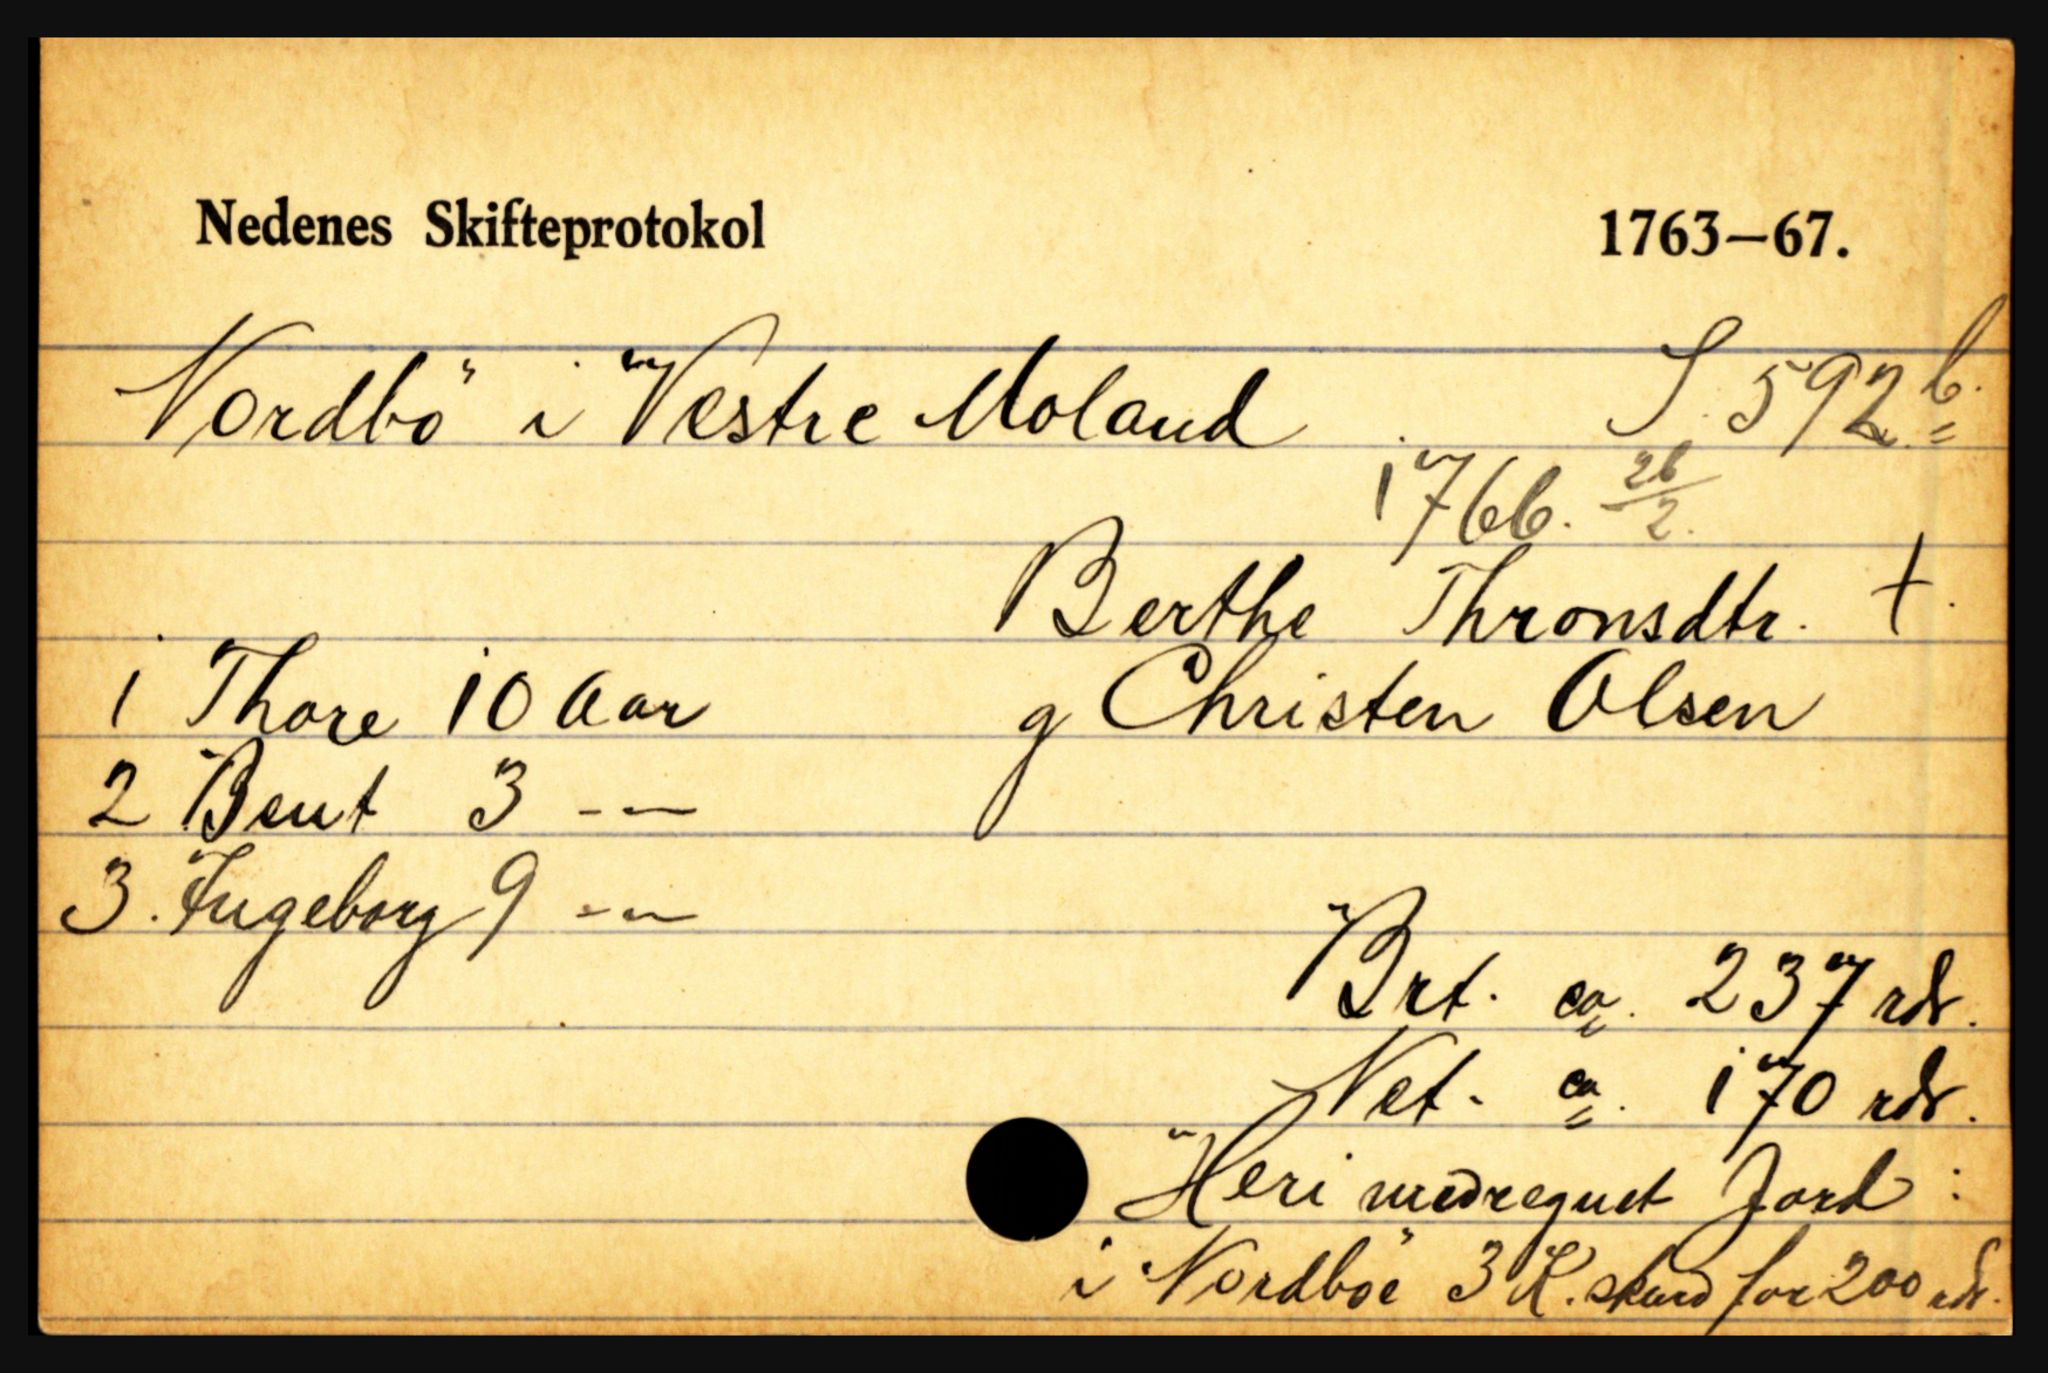 Nedenes Skifteprotokol 1763–67.
Nordbö i Vestre Moland S. 592 b.
1766. 26/2.
Berthe Thronsdtr. †.
1 Thore 10 Aar g Christen Olsen
2 Bent 3 -—
3. Ingeborg 9 -—
Brt. ca. 237 rdr.
Net. ca. 170 rdr.
Heri medregnet Jord :
i Nordböe 3 K. skind for 200 rdr.